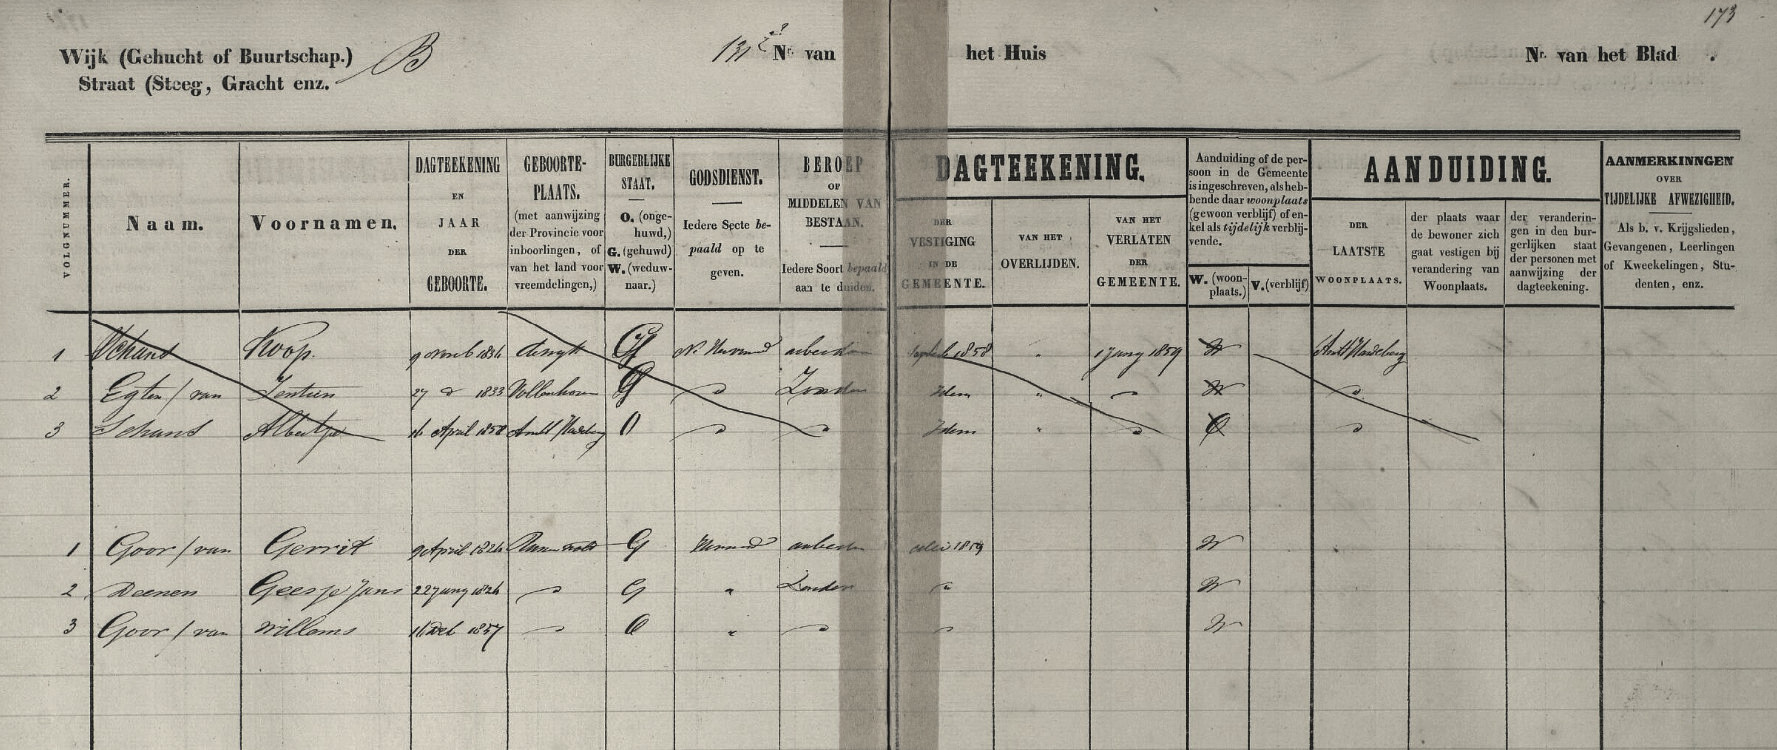 173
Wijk (Gehucht of Buurtschap.) B 131 Nr. van het Huis Nr. van het Blad
Straat (Steeg, Gracht enz.
VOLGNUMMER.
Naam.
Voornamen.
DAGTEEKENING
EN
JAAR
DER
GEBOORTE.
GEBOORTE-
PLAATS.
(met aanwijzing
der Provincie voor
inboorlingen, of
van het land voor
vreemdelingen,)
BURGERLIJKE
STAAT.
O. (onge-
huwd,)
G. (gehuwd)
W. (weduw-
naar.)
GODSDIENST.
Iedere Secte be-
paald op te
geven.
BEROEP
OF
MIDDELEN VAN
BESTAAN.
Iedere Soort bepaald
aan te duiden.
DAGTEEKENING.
DER
VESTIGING
IN DE
GEMEENTE.
VAN HET
OVERLIJDEN.
VAN HET
VERLATEN
DER
GEMEENTE.
Aanduiding of de per-
soon in de Gemeente
is ingeschreven, als heb-
bende daar woonplaats
(gewoon verblijf) of en-
kel als tijdelijk verblij-
vende.
W. (woon-
plaats.)
V. (verblijf)
AANDUIDING.
DER
LAATSTE
WOONPLAATS.
der plaats waar
de bewoner zich
gaat vestigen bij
verandering van
Woonplaats.
der veranderin-
gen in den bur-
gerlijken staat
der personen met
aanwijzing der
dagteekening.
AANMERKINNGEN
OVER
TIJDELIJKE AFWEZIGHEID.
Als b. v. Krijgslieden,
Gevangenen, Leerlingen
of Kweekelingen, Stu-
denten, enz.
1 Schans Koop 9 1836 G N. Hervormd 1858 " 1 1859 W Ambt Hardenberg
2 Egten / van Jentien 27 d 1833 Vollenhoven G Zonder Idem " W
3 Schans Albertje 16 April 1858 Ambt Hardenberg O Idem " O
1 Goor / van Gerrit 9 April 1826 G Hervormd 1859 W
2 Deenen Geesje Jans 22 1826 G " Zonder W
3 Goor / van Willems 1857 O " W